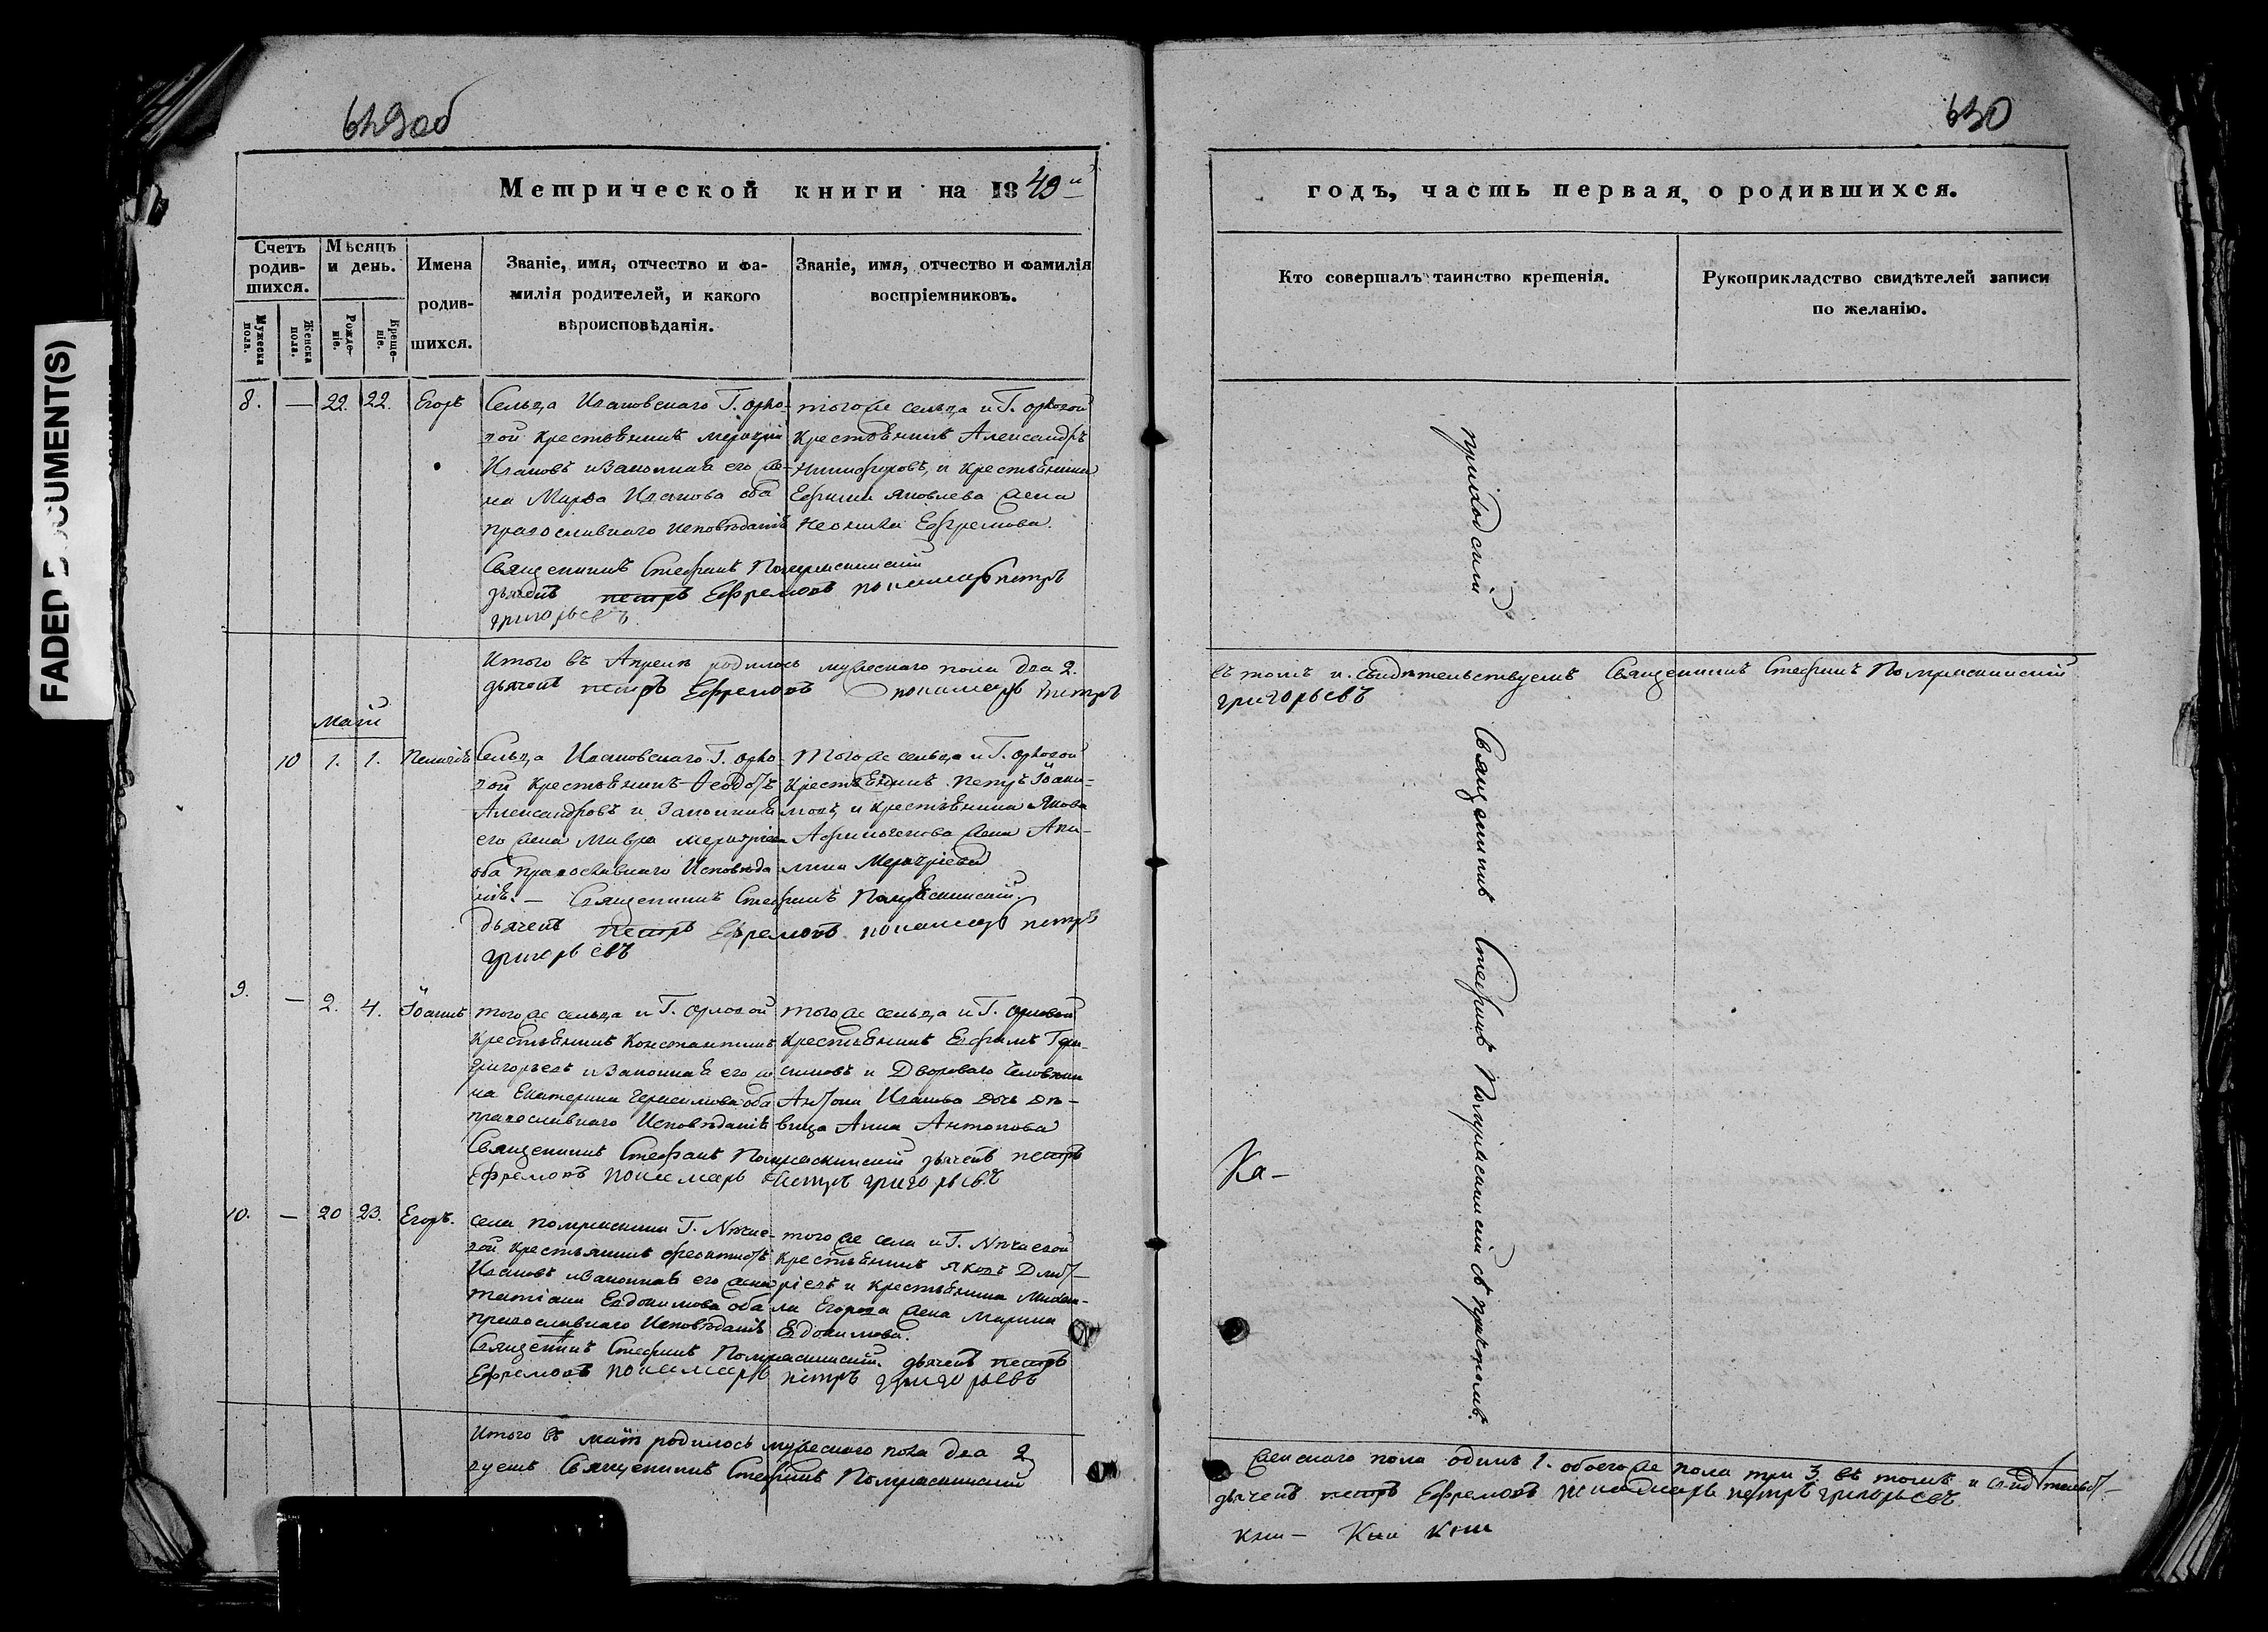 649об
Метрической книги на 1849й
Счетъ родив-шихся.
Мѣсяцъ и день.
Имена родив-шихся.
Званіе, имя, отчество и фа-
милія родителей, и какого
вѣроисповѣданія.
Званіе, имя, отчество и фамилія
воспріемниковъ.
Мужеска пола.
Женска пола.
Рожде-ніе.
Креще-ніе.
8. — 22. 22. Егоръ
Сельца Ивановскаго Г. Орло-
вой крестьянинъ Меркурій
Ивановъ и законная его же-
на Марѳа Иванова оба
православнаго исповѣданія
тогоже сельца и Г. Орловой
крестьянинъ Александръ
Никифоровъ, и крестьянина
Ефима Яковлева жена
Неонила Ефремова.
Священникъ Стефанъ
дьячекъ петръ Ефремовъ пономарь петръ
григорьевъ
Итого въ Апрелѣ родилось мужескаго пола два 2.
дьячекъ петръ Ефремовъ пономарь петръ
Маій
10 1. 1. Пелагія
Сельца Ивановскаго Г. Орло-
вой крестьянинъ Ѳеодоръ
Александровъ и законная
его жена Мавра Меркуріева
оба православнаго Исповѣда
нія. — Священникъ Стефанъ
Тогоже сельца и Г. Орловой
крестьянинъ Петръ Іоаки-
мовъ, и крестьянина Якова
жена Аки-
лина Меркуріева
дьячекъ петръ Ефремовъ пономарь петръ
григорьевъ
9. — 2. 4. Іоаннъ
тогоже сельца и Г. Орловой
крестьянинъ Константинъ
Григорьевъ и законная его же
на Екатерина Герасимова оба
православнаго Исповѣданія
тогоже сельца и Г. Орловой
крестьянинъ Ефимъ Гера-
симовъ и Двороваго человѣка
Антона Иванова дочь дѣ-
вица Анна Антонова
Священникъ Стефанъ дьячекъ петръ
Ефремовъ пономарь петръ григорьевъ
10. — 20 23. Егоръ.
села Г.
вой крестьянинъ
Ивановъ и законная его жена
татіана Евдокимова оба
православнаго Исповѣданія
того же села и Г.
крестьянинъ Яковъ Дмит-
ріевъ и крестьянина Михаи-
ла Егорова жена Марина
Евдокимова.
Священникъ Стефанъ дьячекъ петръ
Ефремовъ пономарь петръ григорьевъ
Итого въ маіѣ родилось мужескаго пола два 2
вуемъ Священникъ Стефанъ
630
годъ, часть первая, о родившихся.
Кто совершалъ таинство крещенія.
Рукоприкладство свидѣтелей записи
по желанію.
приходскій
въ томъ и свидѣтельствуемъ Священникъ Стефанъ
григорьевъ
Священникъ Стефанъ съ причтомъ.
Ка-
Женскаго пола одинъ 1. обоего же пола три 3 въ томъ и свидѣтельст-
дьячекъ петръ Ефремовъ пономарь петръ григорьевъ